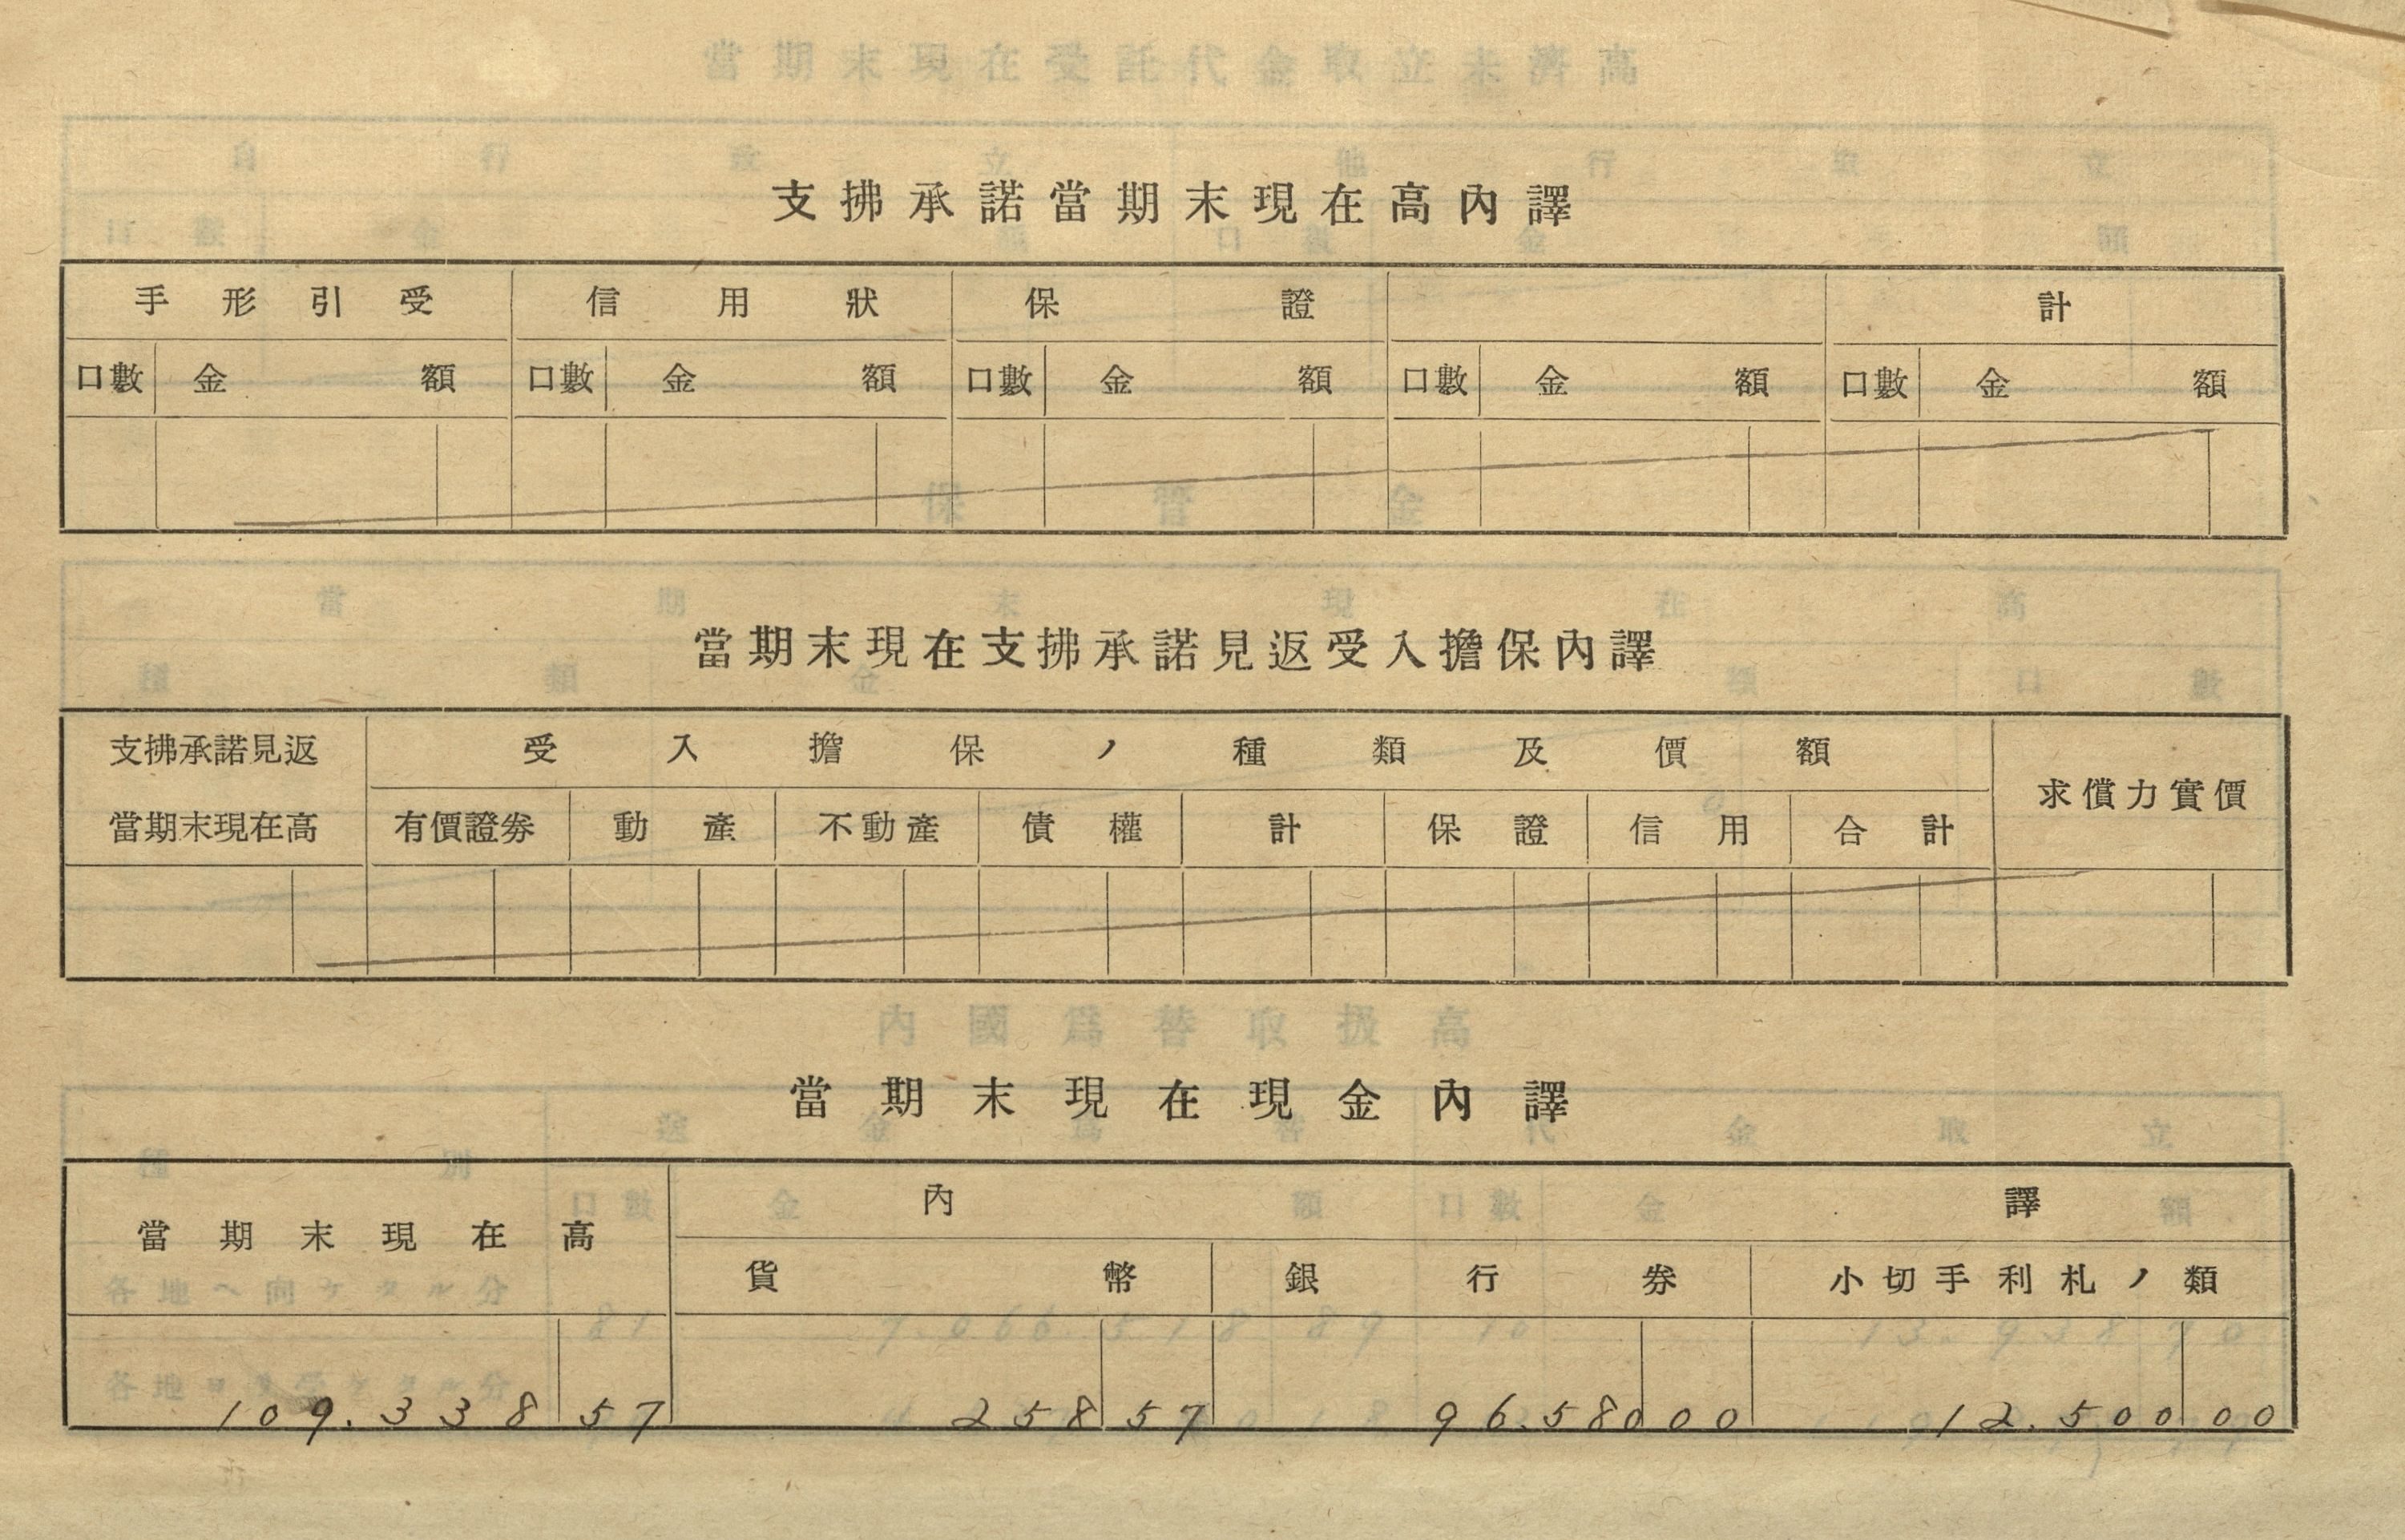 支拂承諾當期末現在高內譯
手形引受 信用狀 保證 計
口數 金額 口數 金額 口數 金額 口數 金額 口數 金額
當期末現在支拂承諾見返受入擔保內譯
支拂承諾見返 受入擔保ノ種類及價額
當期末現在高 有價證券 動產 不動產 債權 計 保證 信用 合計 求償力實價
當期末現在現金內譯
當期末現在高 內譯
貨幣 銀行券 小切手利札ノ類
109.338 57 258 57 96.580 00 12.500 00